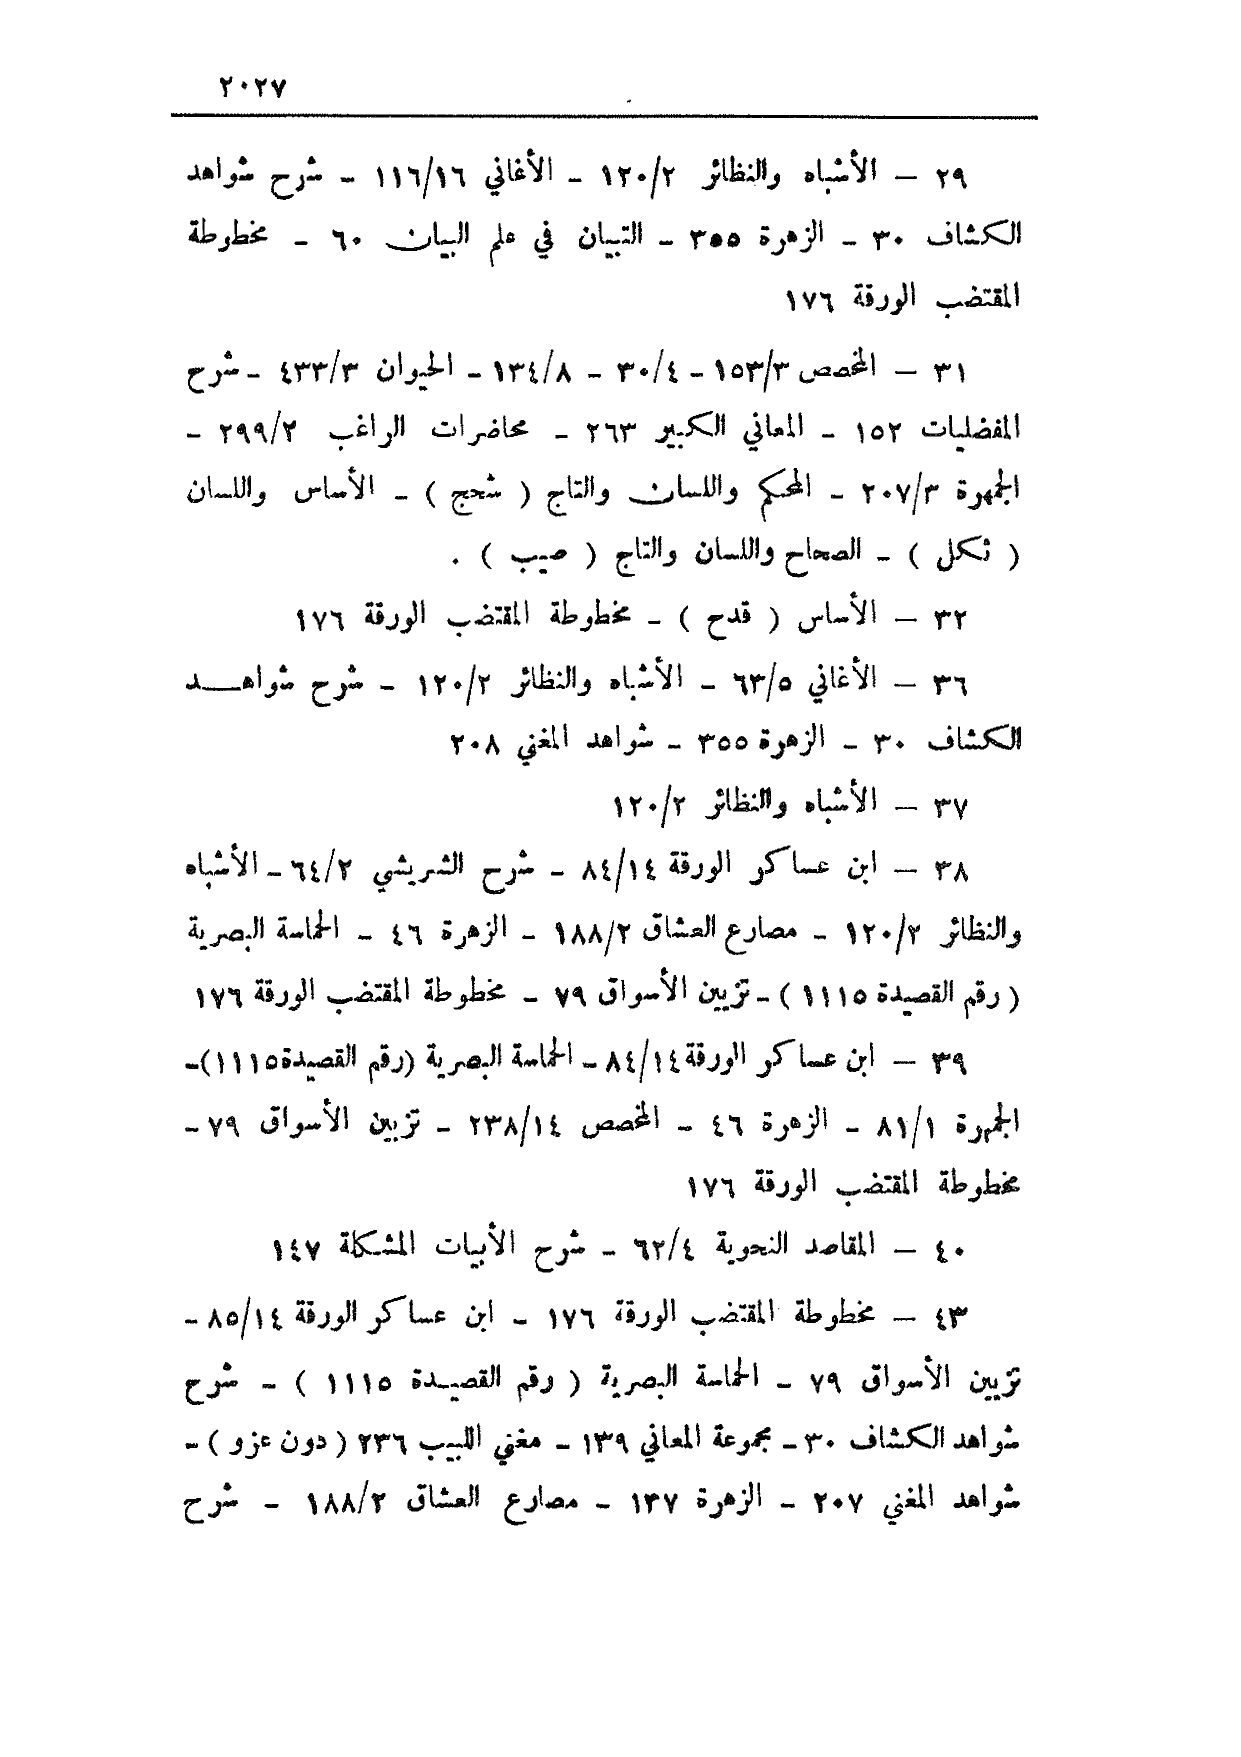 ٢٠٢٧
٢٩ — الأشباه والنظائر ١٢٠/٢ – الأغاني ١١٦/١٦ – شرح شواهد
الكشاف ٣٠ – الزهرة ٣٥٥ – التبيان في علم البيان ٦٠ – مخطوطة
المقتضب الورقة ١٧٦
٣١ — المخصص ١٥٣/٣ – ٣٠/٤ – ١٣٤/٨ – الحيوان ٤٣٣/٣ – شرح
المفضليات ١٥٢ – المعاني الكبير ٢٦٣ – محاضرات الراغب ٢٩٩/٢ –
الجمهرة ٢٠٧/٣ – المحكم واللسان والتاج ( شحج ) – الأساس واللسان
( ثكل ) – الصحاح واللسان والتاج ( صيب ) .
٣٢ — الأساس ( قدح ) – مخطوطة المقتضب الورقة ١٧٦
٣٦ — الأغاني ٦٣/٥ – الأشباه والنظائر ١٢٠/٢ – شرح شواهـــد
الكشاف ٣٠ – الزهرة ٣٥٥ – شواهد المغني ٢٠٨
٣٧ — الأشباه والنظائر ١٢٠/٢
٣٨ — ابن عساكر الورقة ٨٤/١٤ – شرح الشريشي ٦٤/٢ – الأشباه
والنظائر ١٢٠/٢ – مصارع العشاق ١٨٨/٢ – الزهرة ٤٦ – الحماسة البصرية
( رقم القصيدة ١١١٥ ) – تزيين الأسواق ٧٩ – مخطوطة المقتضب الورقة ١٧٦
٣٩ — ابن عساكر الورقة ٨٤/١٤ – الحماسة البصرية (رقم القصيدة ١١١٥)–
الجمهرة ٨١/١ – الزهرة ٤٦ – المخصص ٢٣٨/١٤ – تزيين الأسواق ٧٩ –
مخطوطة المقتضب الورقة ١٧٦
٤٠ — المقاصد النحوية ٦٢/٤ – شرح الأبيات المشكلة ١٤٧
٤٣ — مخطوطة المقتضب الورقة ١٧٦ – ابن عساكر الورقة ٨٥/١٤ –
تزيين الأسواق ٧٩ – الحماسة البصرية ( رقم القصيـدة ١١١٥ ) – شرح
شواهد الكشاف ٣٠ – مجموعة المعاني ١٣٩ – مغني اللبيب ٢٣٦ ( دون عزو ) –
شواهد المغني ٢٠٧ – الزهرة ١٣٧ – مصارع العشاق ١٨٨/٢ – شرح